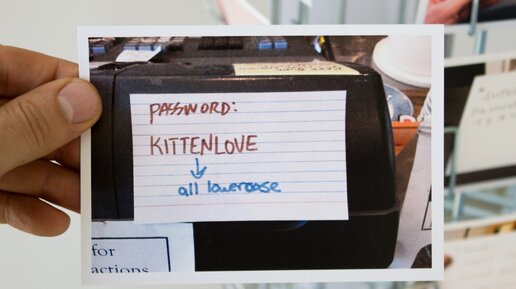 PASSWORD:
KITTENLOVE
all lowercase
for
actions